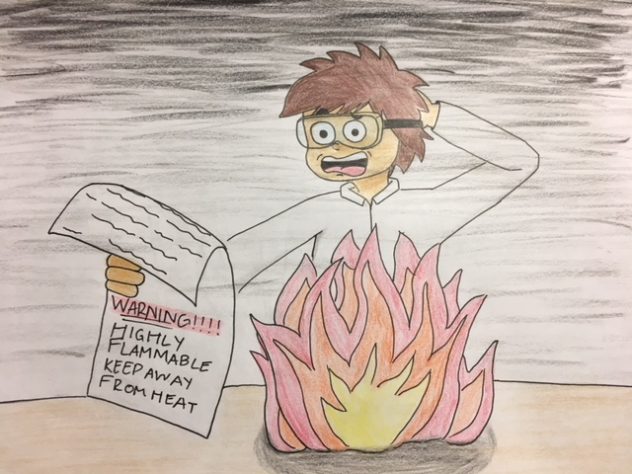 WARNING!!!!
HIGHLY
FLAMMABLE
KEEP AWAY
FROM HEAT